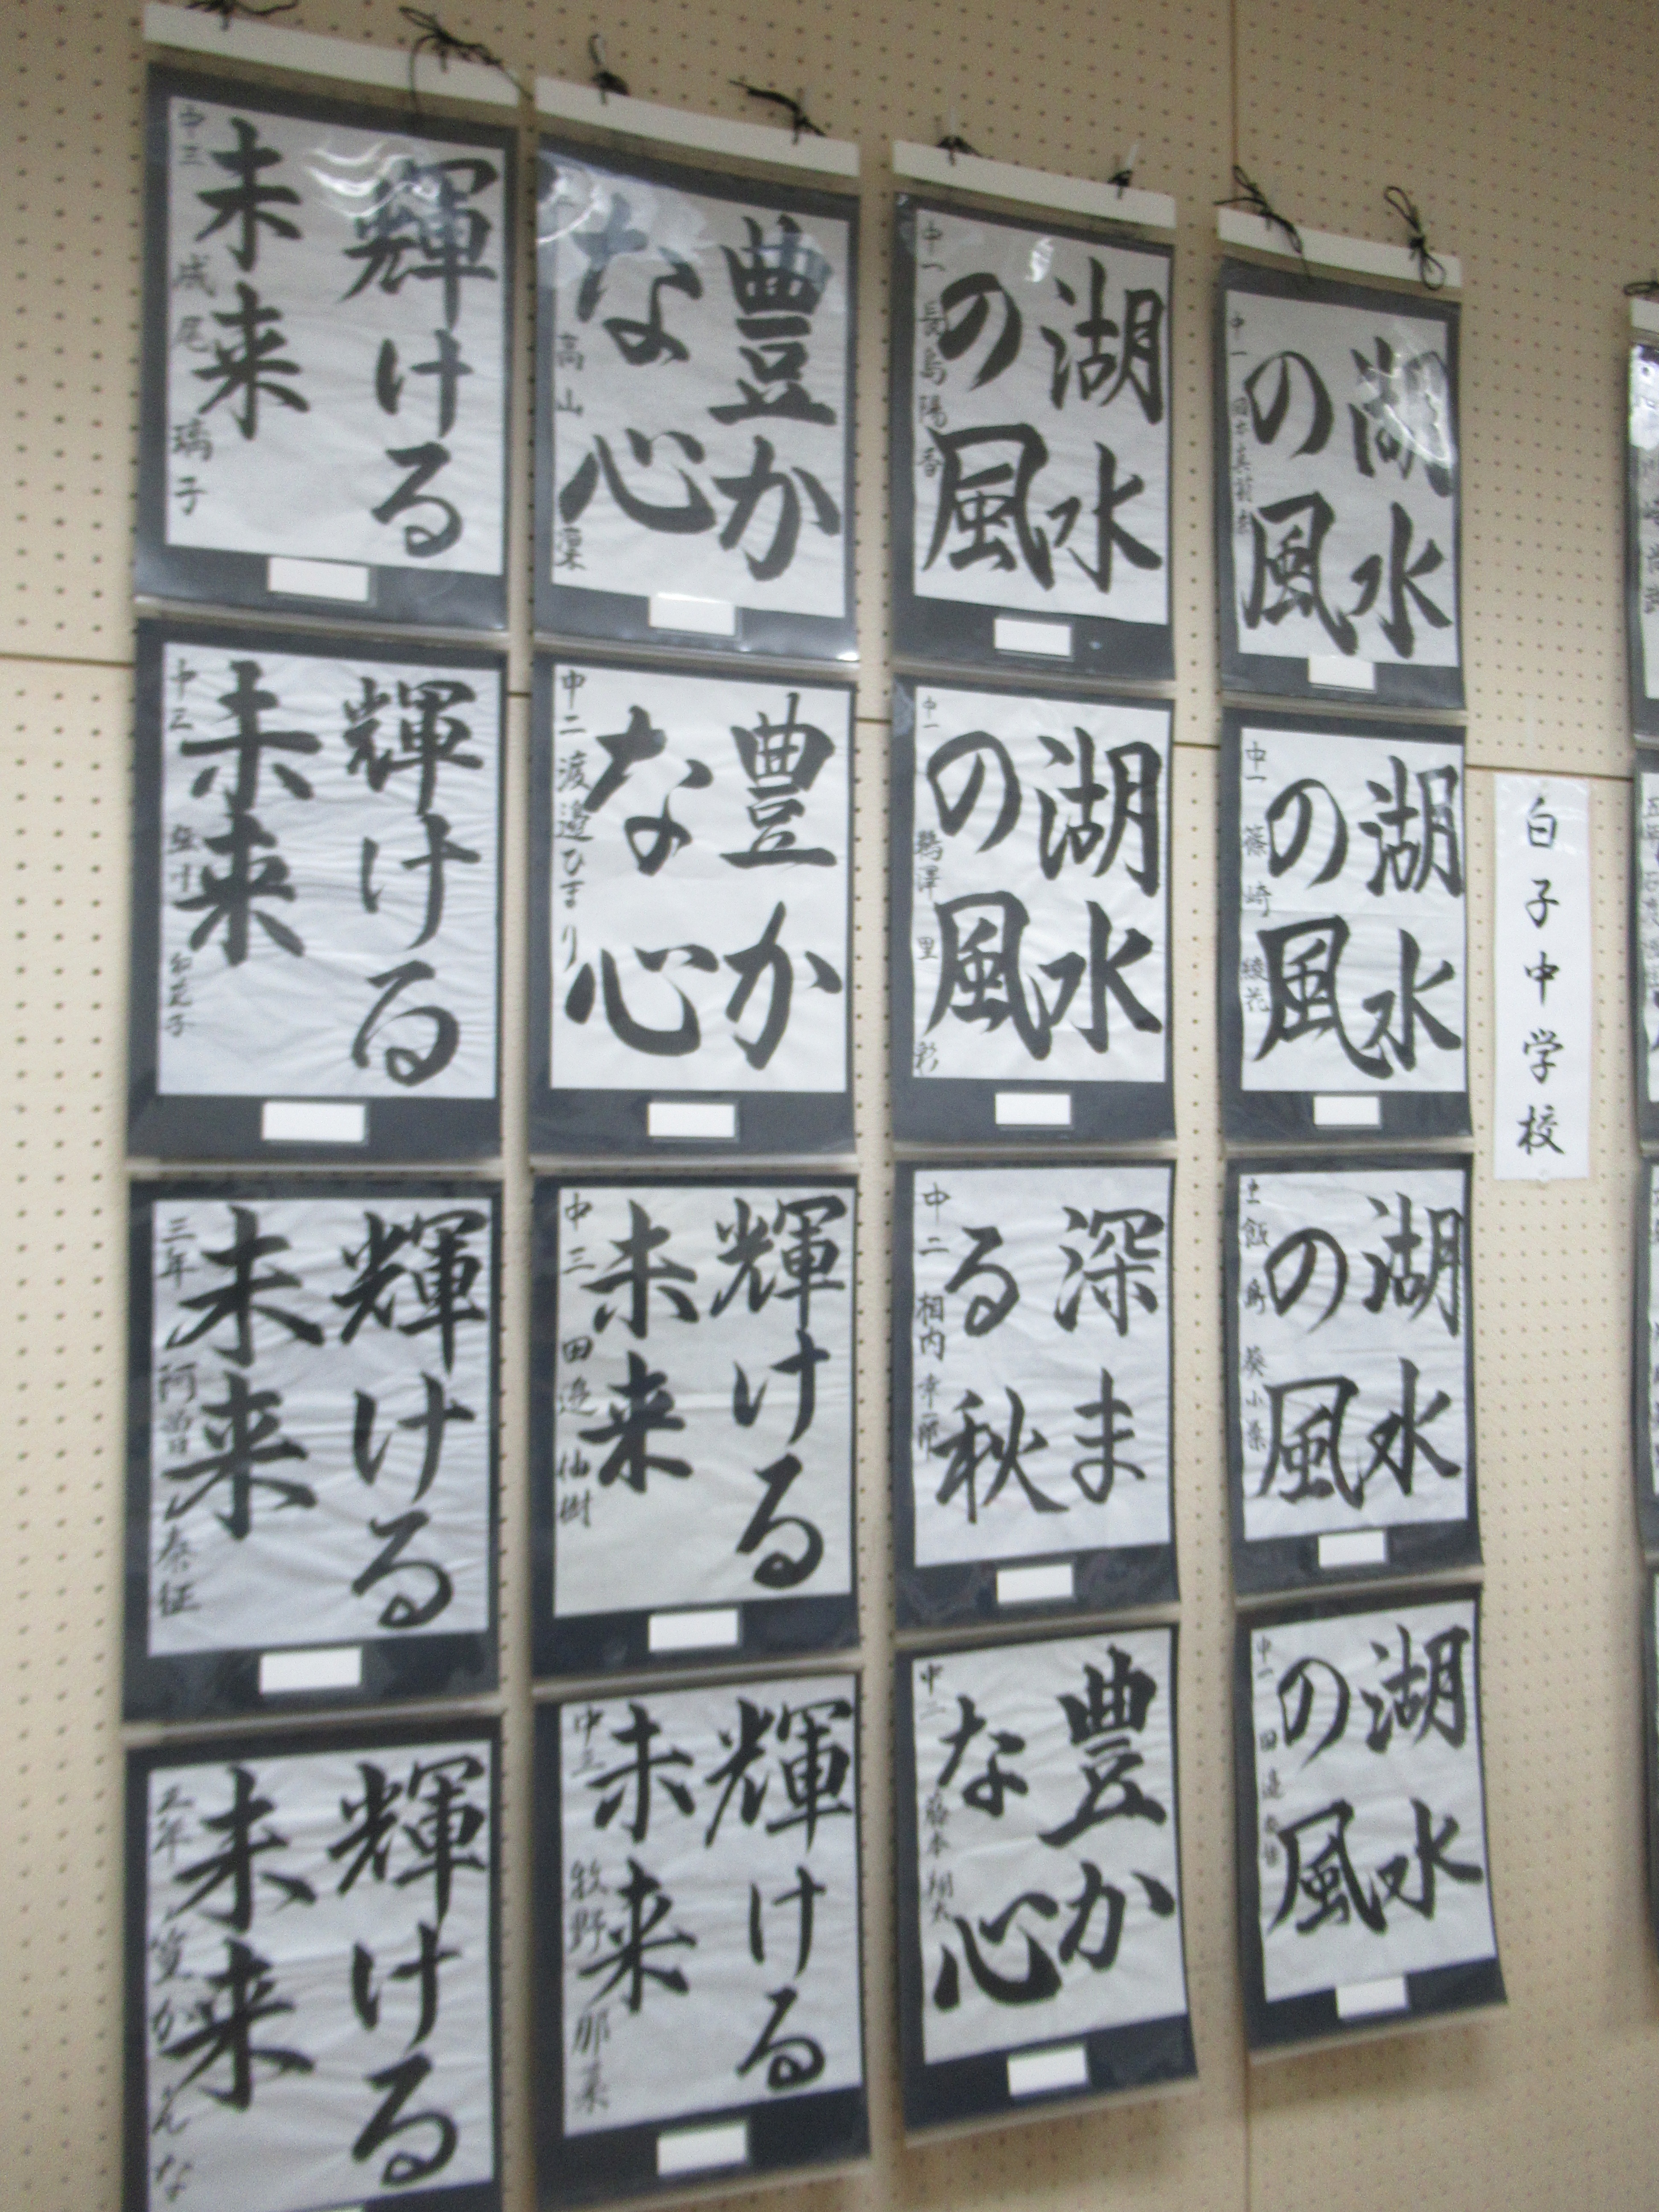 白子中学校
湖水
の風
中一
湖水
の風
中一 篠崎綾花
湖水
の風
湖水
の風
中一 田邉
湖水
の風
中一 長島陽香
湖水
の風
中一 鵜澤里彩
深ま
る秋
中二 相内
豊か
な心
中二 藤本翔太
豊か
な心
高山凜
豊か
な心
中二 渡邉ひまり
輝ける
未来
中三 田邉仙樹
輝ける
未来
中三 牧野那菜
輝ける
未来
中三 成尾璃子
輝ける
未来
中三
輝ける
未来
三年 阿曽泰征
輝ける
未来
三年 筧かんな